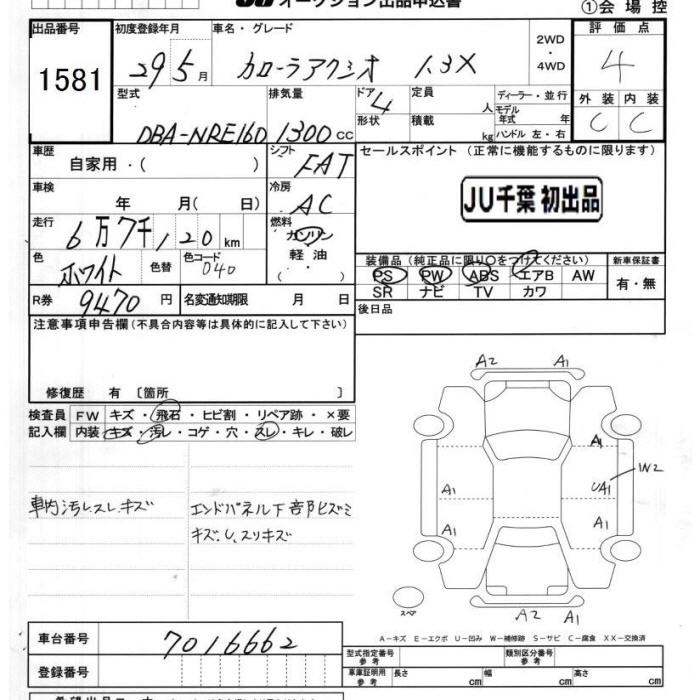 オークション出品申込書
①会場控
出品番号 初度登録年月 車名・グレード 2WD・4WD 評価点
1581 29年5月 カローラアクシオ 1.3X 4
型式 排気量 ドア 定員 人 ディーラー・並行 外装 内装
DBA-NRE160 1300cc 4 形状 積載 kg モデル年式 年 ハンドル 左・右 C C
車歴 自家用・( ) シフト FAT セールスポイント (正常に機能するものに限ります)
車検 年 月( 日) 冷房 AC JU千葉 初出品
走行 6万7千120km 燃料 ガソリン 軽油 ( ・ )
色 ホワイト 色替 色コード 040 装備品 (純正品に限り○をつけてください) 新車保証書
PS PW ABS エアB AW 有・無
SR ナビ TV カワ
R券 9470円 名変通知期限 月 日 後日品
注意事項申告欄(不具合内容等は具体的に記入して下さい)
修復歴 有 〔箇所 〕
検査員 FW キズ・飛石・ヒビ割・リペア跡・×要
記入欄 内装 キズ・汚レ・コゲ・穴・スレ・キレ・破レ
車内汚レスレキズ エンドパネル下部ヒズミ
キズ、U、スリキズ
A2 A1
A1
W2
A1 A1 UA1
A1
A2 A1
スペア
A-キズ E-エクボ U-凹み W-補修跡 S-サビ C-腐食 XX-交換済
車台番号 7016662 型式指定番号 参考 類別区分番号 参考
登録番号 車庫証明用 参考 長さ cm 幅 cm 高さ cm